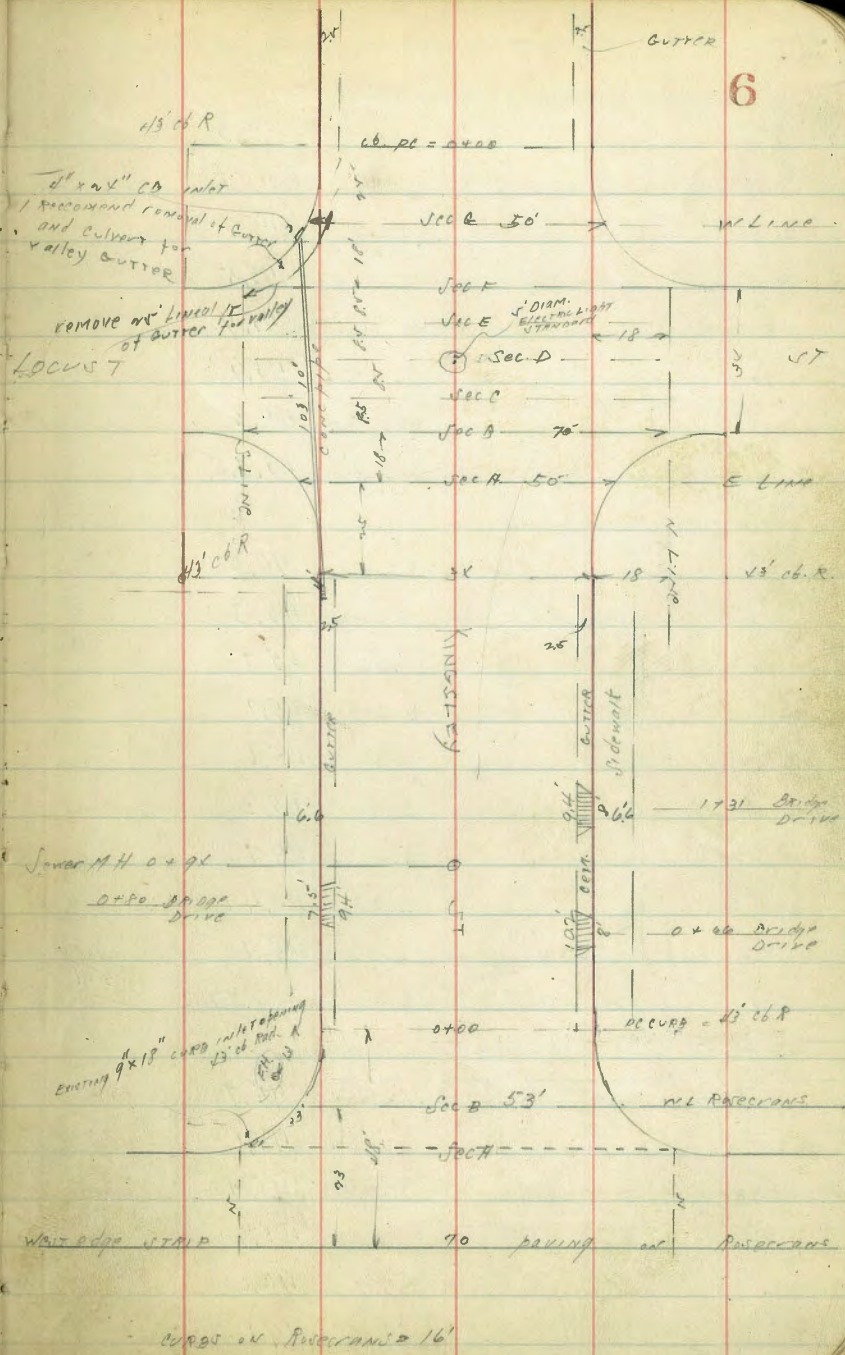 2.5
GUTTER
6
43' cb R
cb. PC = 0+00
4" x 24" CB inlet
I Reccomend removal of Gutter
and Culvert for
valley Gutter
Sec G 50'
W LINE
Sec F
remove 25' Lineal
of Gutter for valley
Sec E
5' DIAM.
ELECTRIC LIGHT
STANDARD
18
LOCUST
Sec D
ST
103' 10"
CONC PIPE
Sec C
Sec B 70'
Sec A 50'
E LINE
25
18
8.5
8.5
8.5
8.5
18'
25'
43' cb R
18
43' cb. R.
2.5
2.5
KINGSLEY
ST
GUTTER
CEM. GUTTER
Sidewalk
6.6
9.4'
8'
6.6
1+31 Bridge
Drive
Sewer MH 0+94
0+80 BRIDGE
Drive
7.5'
9.4'
10.2'
8'
0+46 Bridge
Drive
Existing 9"x18" CURB inlet opening
43' cb Rad.
FH
0+00
PC CURB = 43' cb R
23'
Sec B 53'
WL Rosecrans
Sec A
48'
23
West edge STRIP
70
paving on Rosecrans
CURBS ON Rosecrans = 16'